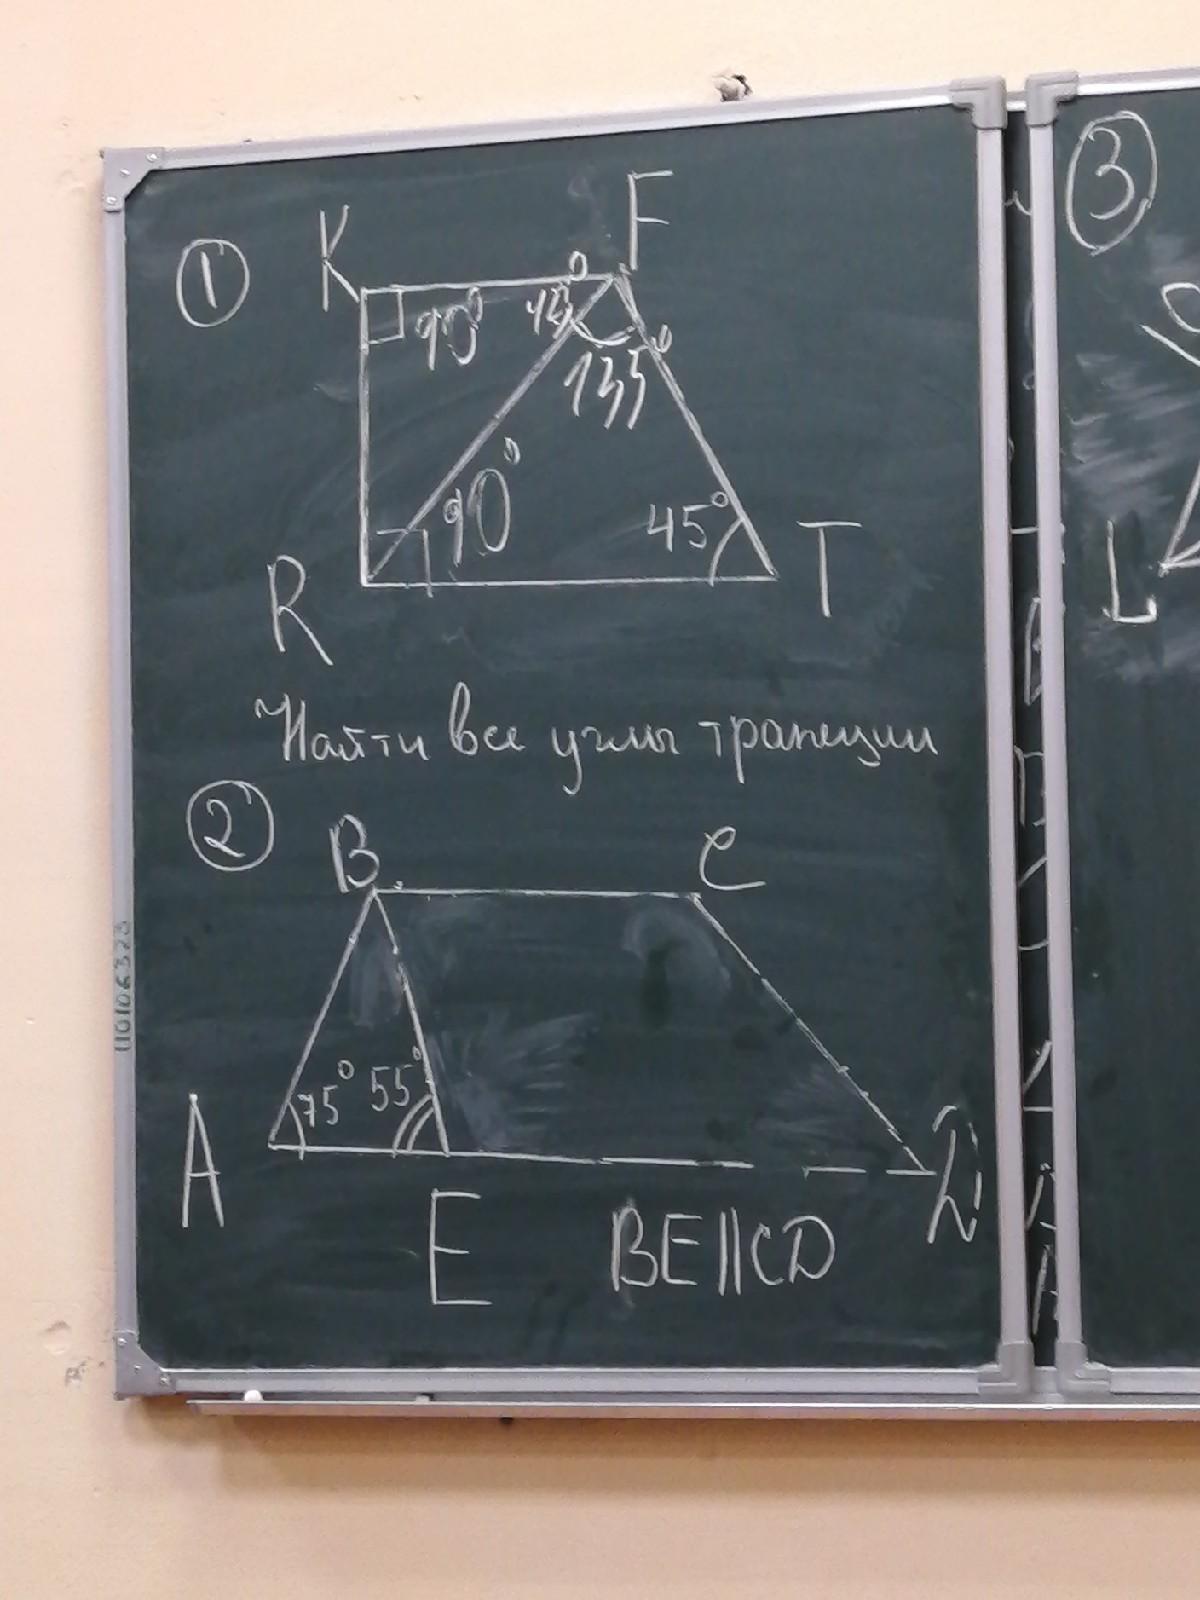 1
3
K
F
90°
135°
90°
45°
R
T
L
Найти все углы трапеции
2
B
C
75° 55°
A
D
E
BE||CD
110106323